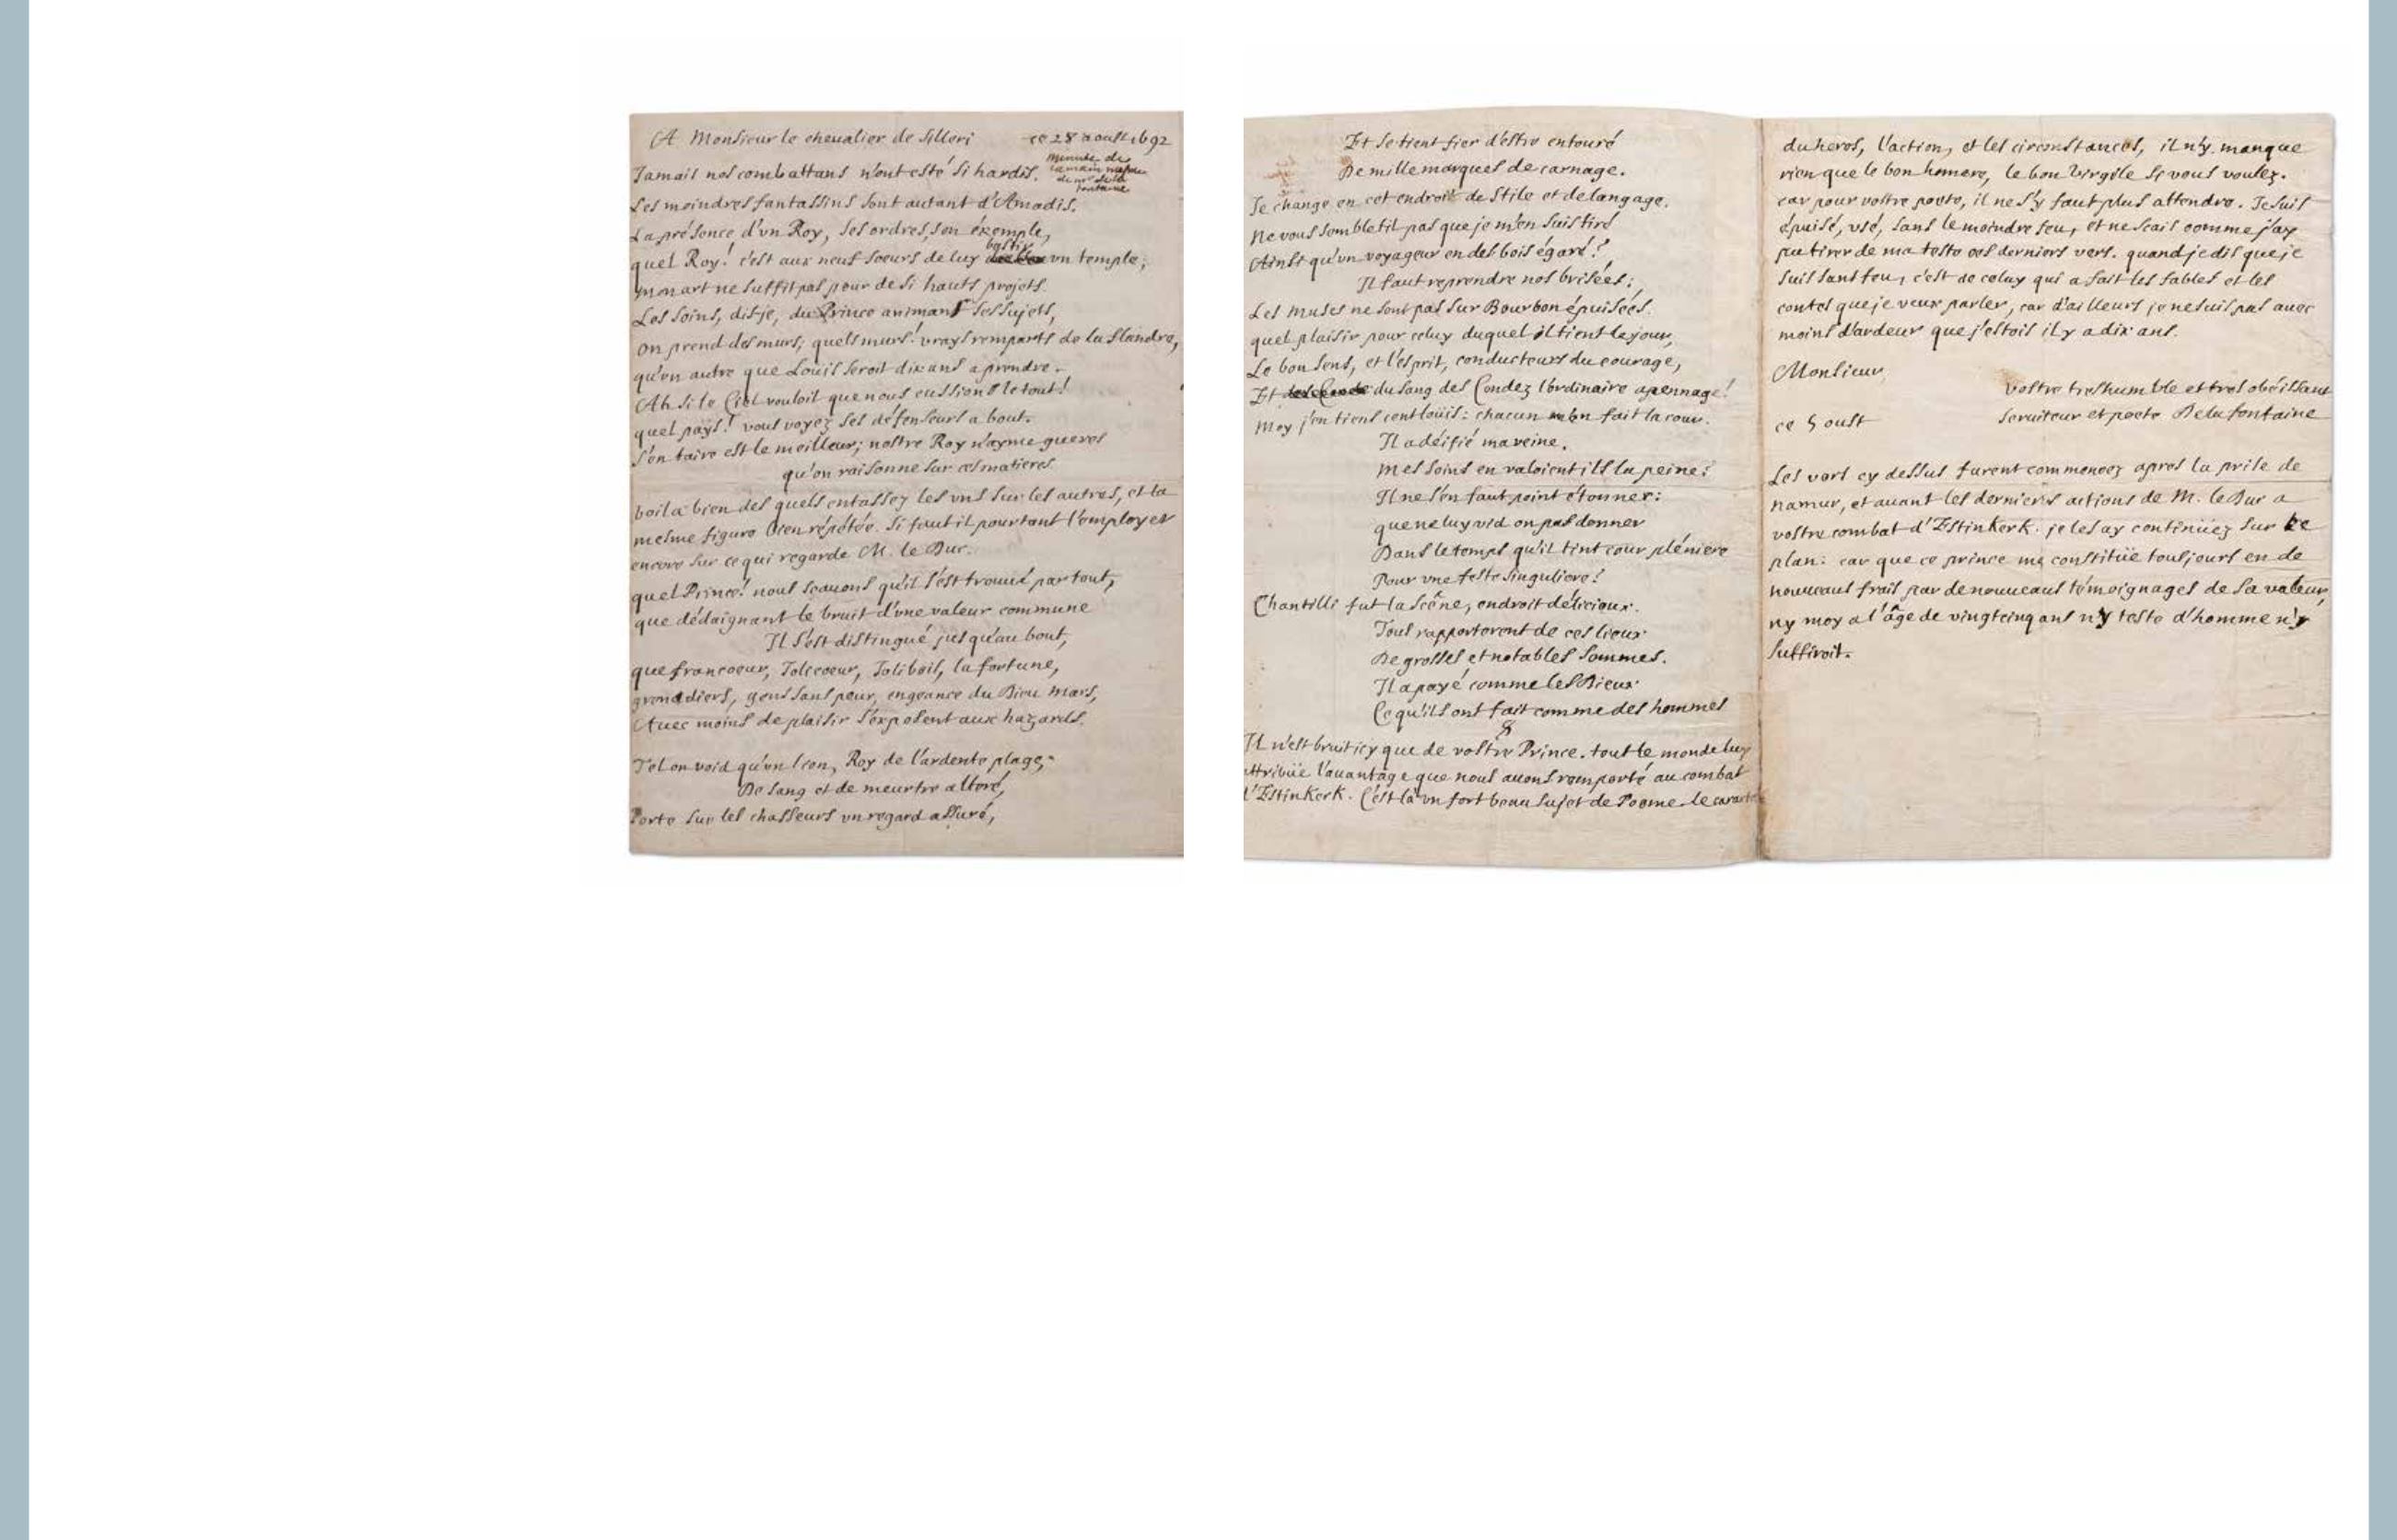 A Monsieur le chevalier de Silleri ce 28 aoust 1692
minute de
la main mesme
de mr de la
fontaine
Jamais nos combattans n'ont esté si hardis.
Les moindres fantassins sont autant d'Amadis.
La présence d'un Roy, ses ordres, son éxemple,
bastir
quel Roy! c'est aux neuf soeurs de luy un temple;
mon art ne suffit pas pour de si hauts projets.
Les soins, dis-je, du Prince animant ses sujets,
on prend des murs; quels murs! vrays remparts de la flandre,
qu'un autre que Louis seroit dix ans a prendre.
Ah si le Ciel vouloit que nous eussions le tout!
quel païs! vous voyez ses défenseurs a bout.
s'en taire est le meilleur; nostre Roy n'ayme gueres
qu'on raisonne sur ces matieres.
voila bien des quels entassez les uns sur les autres, et la
mesme figure bien répétée. si faut il pourtant l'employer
encore sur ce qui regarde M. le Duc.
quel Prince! nous scavons qu'il s'est trouvé par tout,
que dédaignant le bruit d'une valeur commune
Il s'est distingué jusqu'au bout,
que francoeur, Jolicoeur, Jolibois, la fortune,
grenadiers, gens sans peur, engeance du Dieu Mars,
Avec moins de plaisir s'exposent aux hazards.
Tel on void qu'un lion, Roy de l'ardente plage,
De sang et de meurtre alteré,
Porte sur les chasseurs un regard assuré,
Et se tient fier d'estre entouré
De mille marques de carnage.
Je change en cet endroit de stile et de langage.
Ne vous semble t il pas que je m'en suis tiré
Ainsi qu'un voyageur en des bois égaré?
Il faut reprendre nos brisées;
Les Muses ne sont pas sur Bourbon épuisées.
quel plaisir pour celuy duquel il tient le jour,
Le bon sens, et l'esprit, conducteurs du courage,
Et du sang des Condez l'ordinaire apennage!
Moy j'en tiens cent loüis: chacun m'en fait la cour.
Il a déifié ma veine.
Mes soins en valoient ils la peine?
Il ne s'en faut point étonner:
que ne luy vid on pas donner
Dans le temps qu'il tint cour pléniere
Pour une feste singuliere?
Chantilli fut la scêne, endroit délicieux.
Tous rapporterent de ces lieux
De grosses et notables sommes.
Il a payé comme les Dieux
Ce qu'ils ont fait comme des hommes
Il n'est bruit icy que de vostre Prince. tout le monde luy
attribüe l'avantage que nous avons remporté au combat
d'Estinkerk. C'est là un fort beau sujet de Poeme. le caractere
du heros, l'action, et les circonstances, il n'y manque
rien que le bon homere, le bon Virgile si vous voulez.
car pour vostre poete, il ne s'y faut plus attendre. Je suis
épuisé, usé, sans le moindre feu, et ne scais comme j'ay
pu tirer de ma teste ces derniers vers. quand je dis que je
suis sans feu, c'est de celuy qui a fait les fables et les
contes que je veux parler, car d'ailleurs je ne suis pas avec
moins d'ardeur que j'estois il y a dix ans.
Monsieur
vostre tres humble et tres obéissant
ce 5 oust serviteur et poete De la fontaine
Les vers cy dessus furent commencez apres la prise de
namur, et avant les dernieres actions de M. le Duc a
vostre combat d'Estinkerk. je les ay continüez sur ce
plan: car que ce prince me constitüe tousjours en de
nouveaux frais par de nouveaux témoignages de sa valeur,
ny moy a l'âge de vingt cinq ans ny teste d'homme n'y
suffiroit.